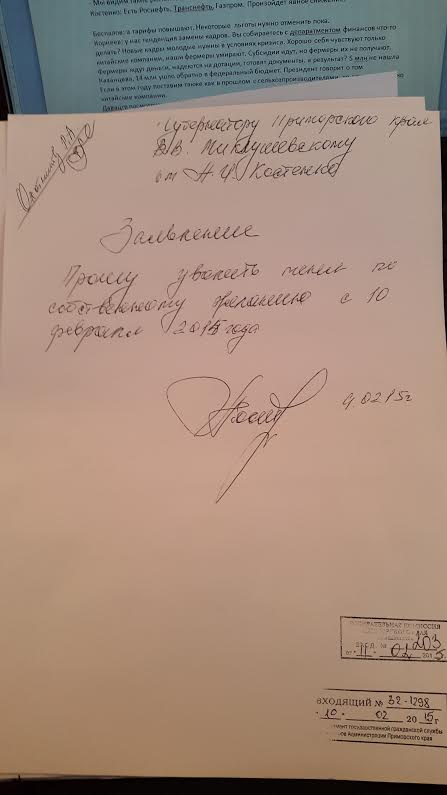 Мы видим такие
Костенко: Есть Роснефть, Транснефть, Газпром. Произойдет явное
Беспалов: а тарифы повышают. Некоторые льготы нужно отменить пока.
Корнеев: у нас тенденция замены кадров. Вы собираетесь с департаментом финансов что-то
делать? Новые кадры молодые нужны в условиях кризиса. Хорошо себя чувствуют только
китайские компании, наши фермеры умирают. Субсидии идут, но фермеры их не получают.
Фермеры ждут деньги, надеются на дотации, готовят документы, а результат? 5 млн не нашла
Казанцева, 14 млн ушло обратно в федеральный бюджет. Президент говорит о том
Если в этом году поставим также как в прошлом с сельхозпроизводителями
китайские компании.
Губернатору Приморского края
В.В. Миклушевскому
от Костенко
Заявление
Прошу уволить меня по
собственному желанию с 10
февраля 2015 года
9.02.15г
ИЗБИРАТЕЛЬНАЯ КОМИССИЯ
ПРИМОРСКОГО КРАЯ
ВХОД. № 203
от "11" 02 2015
ВХОДЯЩИЙ № 32-1298
10. 02 2015г
государственной гражданской службы
Администрации Приморского края